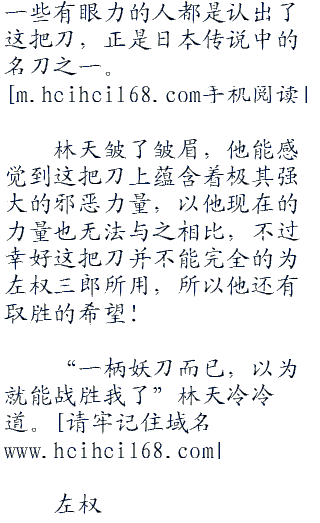 一些有眼力的人都是认出了
这把刀，正是日本传说中的
名刀之一。
[m.hcihci168.com手机阅读|
林天皱了皱眉，他能感
觉到这把刀上蕴含着极其强
大的邪恶力量，以他现在的
力量也无法与之相比，不过
幸好这把刀并不能完全的为
左权三郎所用，所以他还有
取胜的希望！
“一柄妖刀而已，以为
就能战胜我了”林天冷冷
道。[请牢记住域名
www.hcihci168.com|
左权